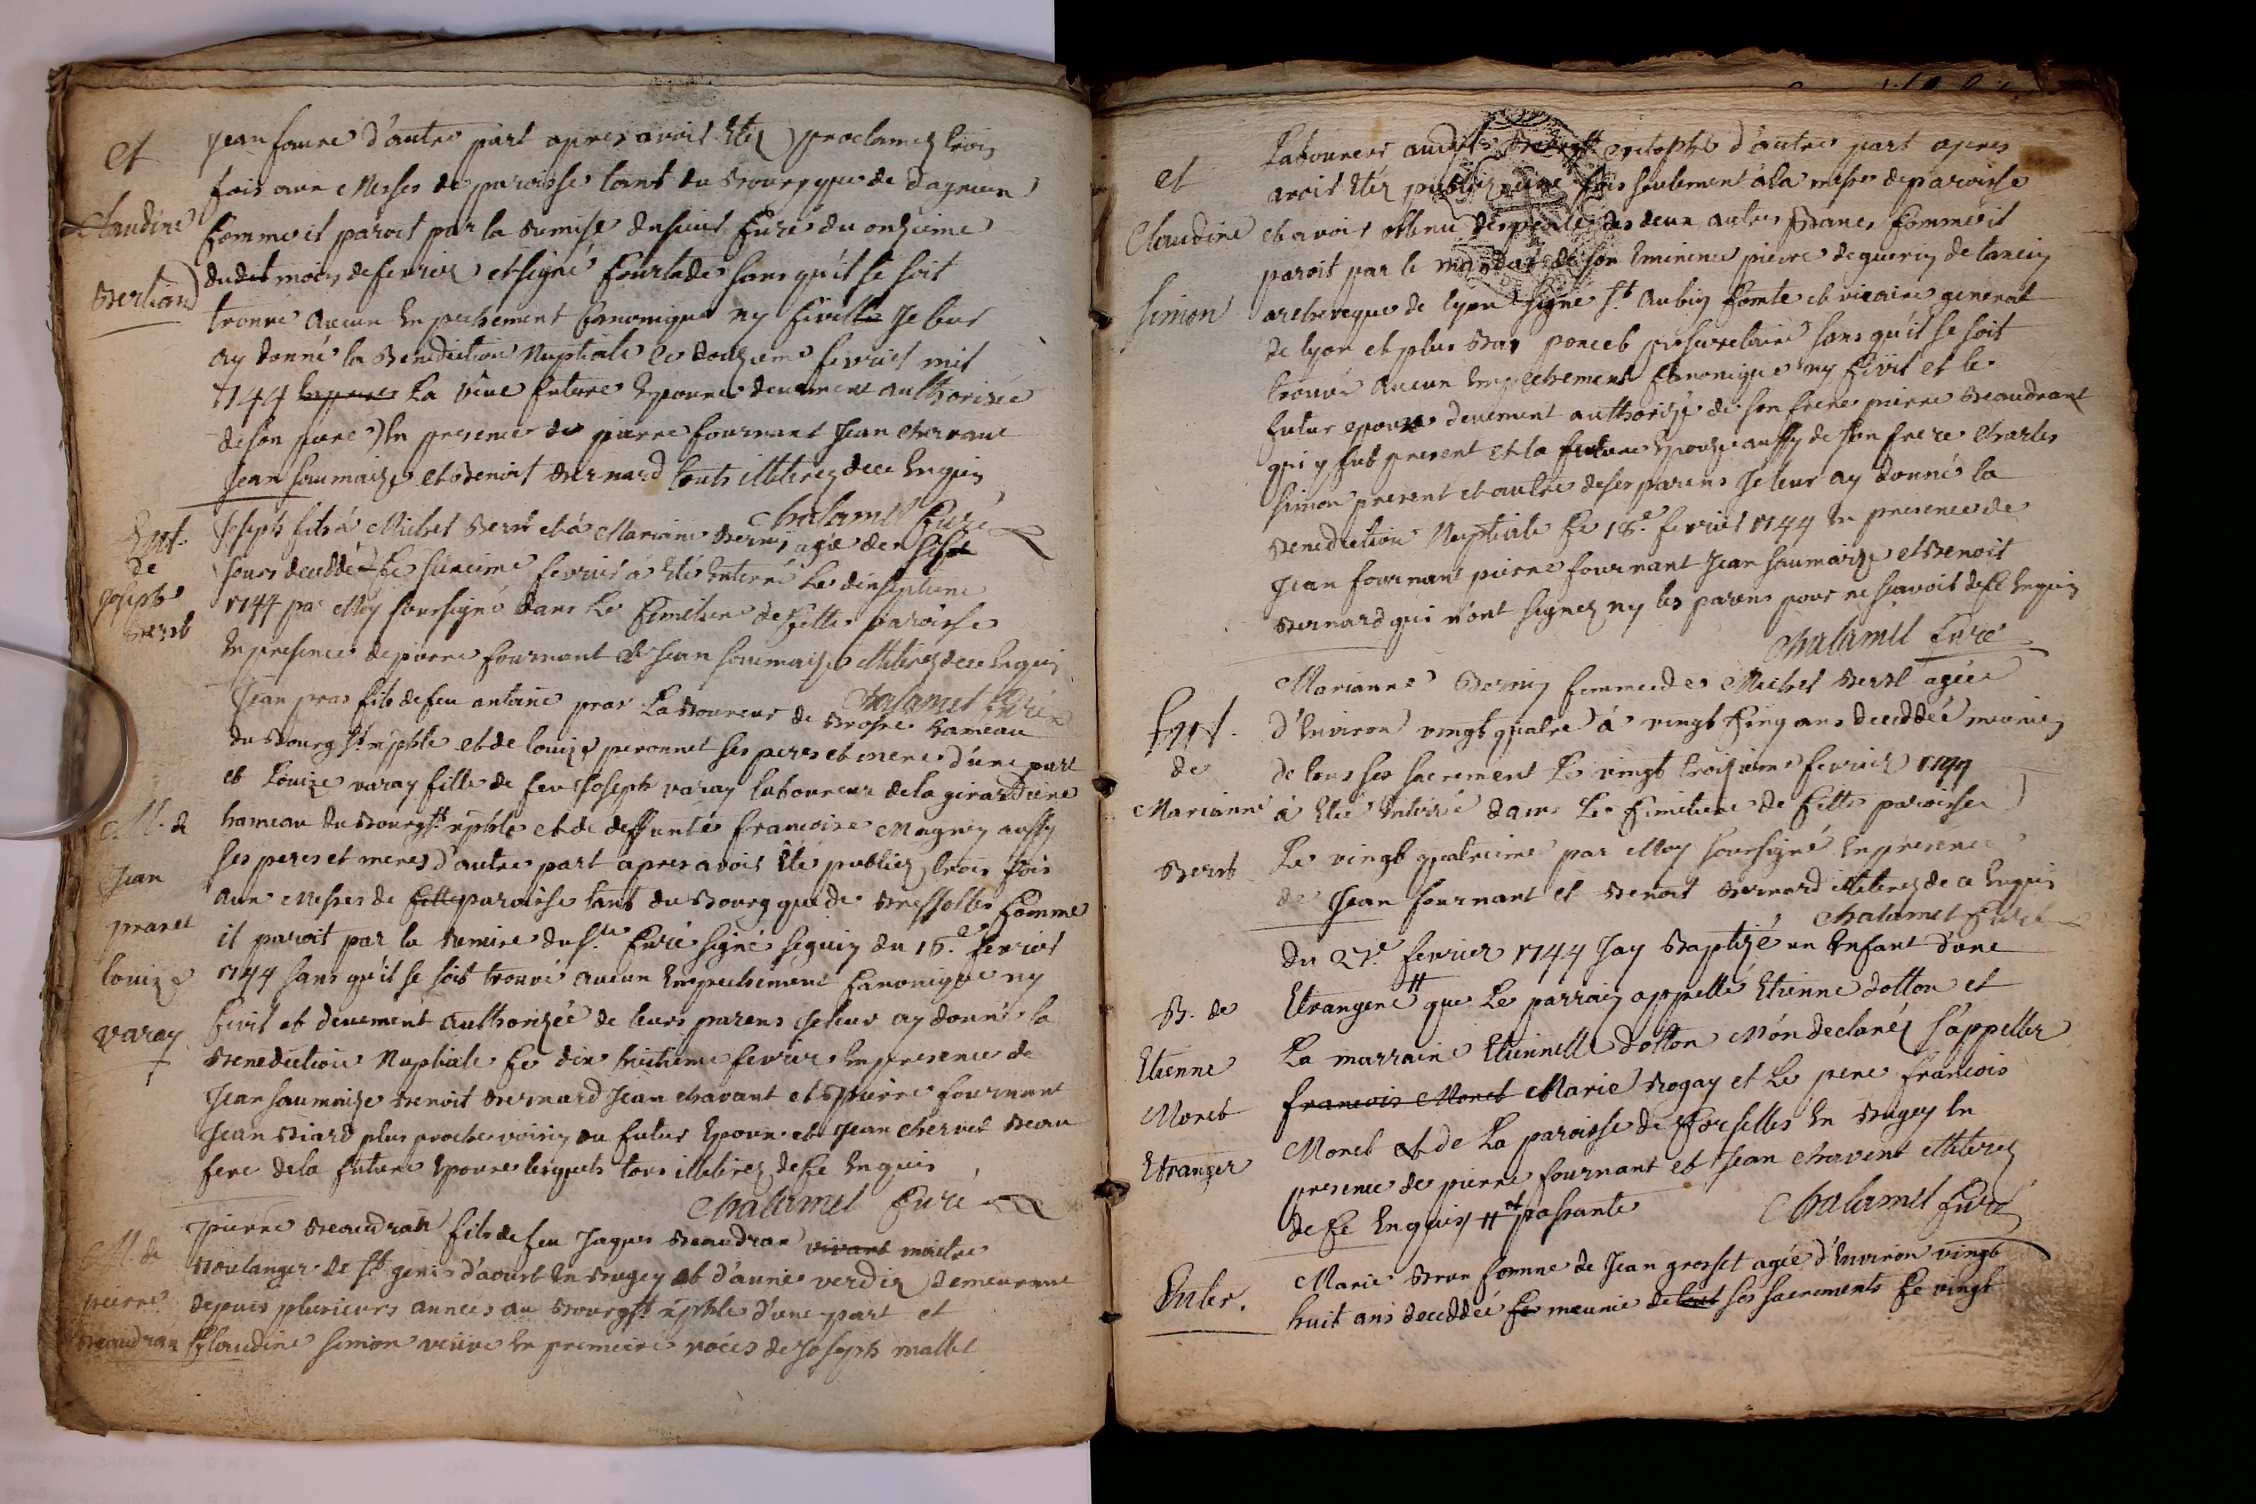 et
Claudine
Berliard
jean faure d'autre part apres avoir étéz proclamez trois
fois aux Messes de paroisse tant du Bourg que de dagneux
comme il paroit par la remise dusieur curé du onzieme
dudit mois de fevrier et signé courtade sans qu'il se soit
trouvé aucun Enpechement Canonique ny civille Je leur
ay donné la Benediction Nuptiale le douzieme fevrier mil
1744 la ditte future Epouze deuement authorisée
de son pere en presence de pierre fournant Jean chervanc
Jean saumaize et Benoit Bernard touts illitirez de ce Enquis
Chalamel Curé
Ent.
de
Joseph
Berst
Joseph fils à Michel Berst et à Mariane Bernin agé de sept
jours deceddé le seizieme fevrier à été enterré Le dixseptieme
1744 par Moy soussigné dans Le Cimetiere de cette paroisse
En presence de pierre fournant et Jean saumaize illitirez de ce Enquis
Chalamel Curé
M. de
Jean
pras et
Louize
Varay
Jean pras fils de feu antoine pras Laboureur de Brosse hameau
du Bourg St. xphle et de Louize peronnet ses peres et mere d'une part
et Louize varay fille de feu Joseph varay laboureur de la girardiere
hameau du Bourg St. xphle et de deffunte francoise Magnin aussy
ses peres et meres d'autre part apres avoir été publiez trois fois
aux Messes de cette paroisse tant du Bourg que de Bressolles comme
il paroit par la remise du sr. Curé signé seguin du 16.e fevrier
1744 sans qu'il se soit trouvé aucun Empechement Canonique ny
Civil et deuement authorizée de leurs parens Je leur ay donné la
Benediction Nuptiale Ce dix huitieme fevrier En presence de
Jean saumaize Benoit Bernard Jean chavant et pierre fournant
Jean Biard plus proche voisin du futur Epoux et Jean chervet Beau
frere de la future Epouze lesquels tous illitirez de Ce Enquis
Chalamel Curé
M. de
pierre
Beaudran
pierre Beaudran fils de feu Jaques Beaudran vivant maitre
Boulanger de St. genis d'aoust En Bugey et d'anne verdier demeurant
depuis plusieurs années au Bourg St. xphle d'une part et
Claudine simon veuve en premiere noces de Joseph mallet
et
Claudine
Simon
Laboureur audit Bourg St. cristophle d'autre part apres
avoir étéz publiez une fois seulement à la messe de paroisse
et avoir obtenu dispense des deux autres Bancs Comme il
paroit par le mandat de son Eminence pierre de guerin de tancin
archeveque de lyon signé St. aubin Comte et vicaire general
de lyon et plus Bas poncet prosecretaire sans qu'il se soit
trouvé aucun Empechement Canonique ny Civil et le
futur epoux deuement authorizé de son frere pierre Beaudrant
qui y fut present et la future Epouze aussy de son frere Charles
simon present et autre de ses parens Je leur ay donné la
Benediction Nuptiale Ce 18.e fevrier 1744 En presence de
Jean fournant pierre fournant Jean saumaize et Benoit
Bernard qui n'ont signez ny les parens pour ne scavoir de Ce Enquis
Chalamel Curé
Ent.
de
Marianne
Berst
Marianne Bernin femme de Michel Berst agée
d'Environ vingt quatre à vingt Cinq ans deceddée munie
de tous ses sacrement Le vingt troisieme fevrier 1744
à été enterrée dans Le Cimetiere de Cette paroisse
Le vingt quatrieme par Moy soussigné En présence
de Jean fournant et Benoit Bernard illitirez de ce Enquis
Chalamel Curé
B. de
Etienne
Moret
Etranger
Du 27.e fevrier 1744 Jay Baptizé un Enfant d'une
Etrangere # que Le parrain appellé Etienne dotton et
La marraine Etiennette dotton M'ón declaréz s'appeller
francois Moret Marie Rogay et Le pere francois
Moret et de La paroisse de Corselles En Bugey En
presence de pierre fournant et Jean chavent illitirez
de Ce Enquis # et passante
Chalamel Curé
Enter.
Marie Brun femme de Jean grosset agée d'Environ vingt
huit ans deceddée Ce meunie de tout ses sacrements Ce vingt